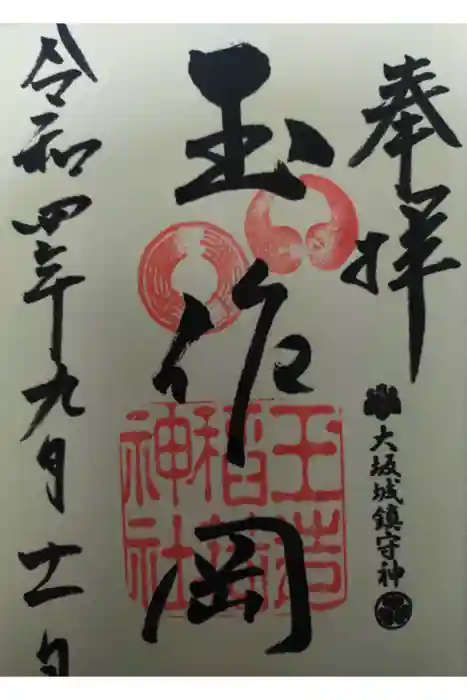 奉拝
大坂城鎮守神
玉作岡
玉造稲荷神社
令和四年九月十一日